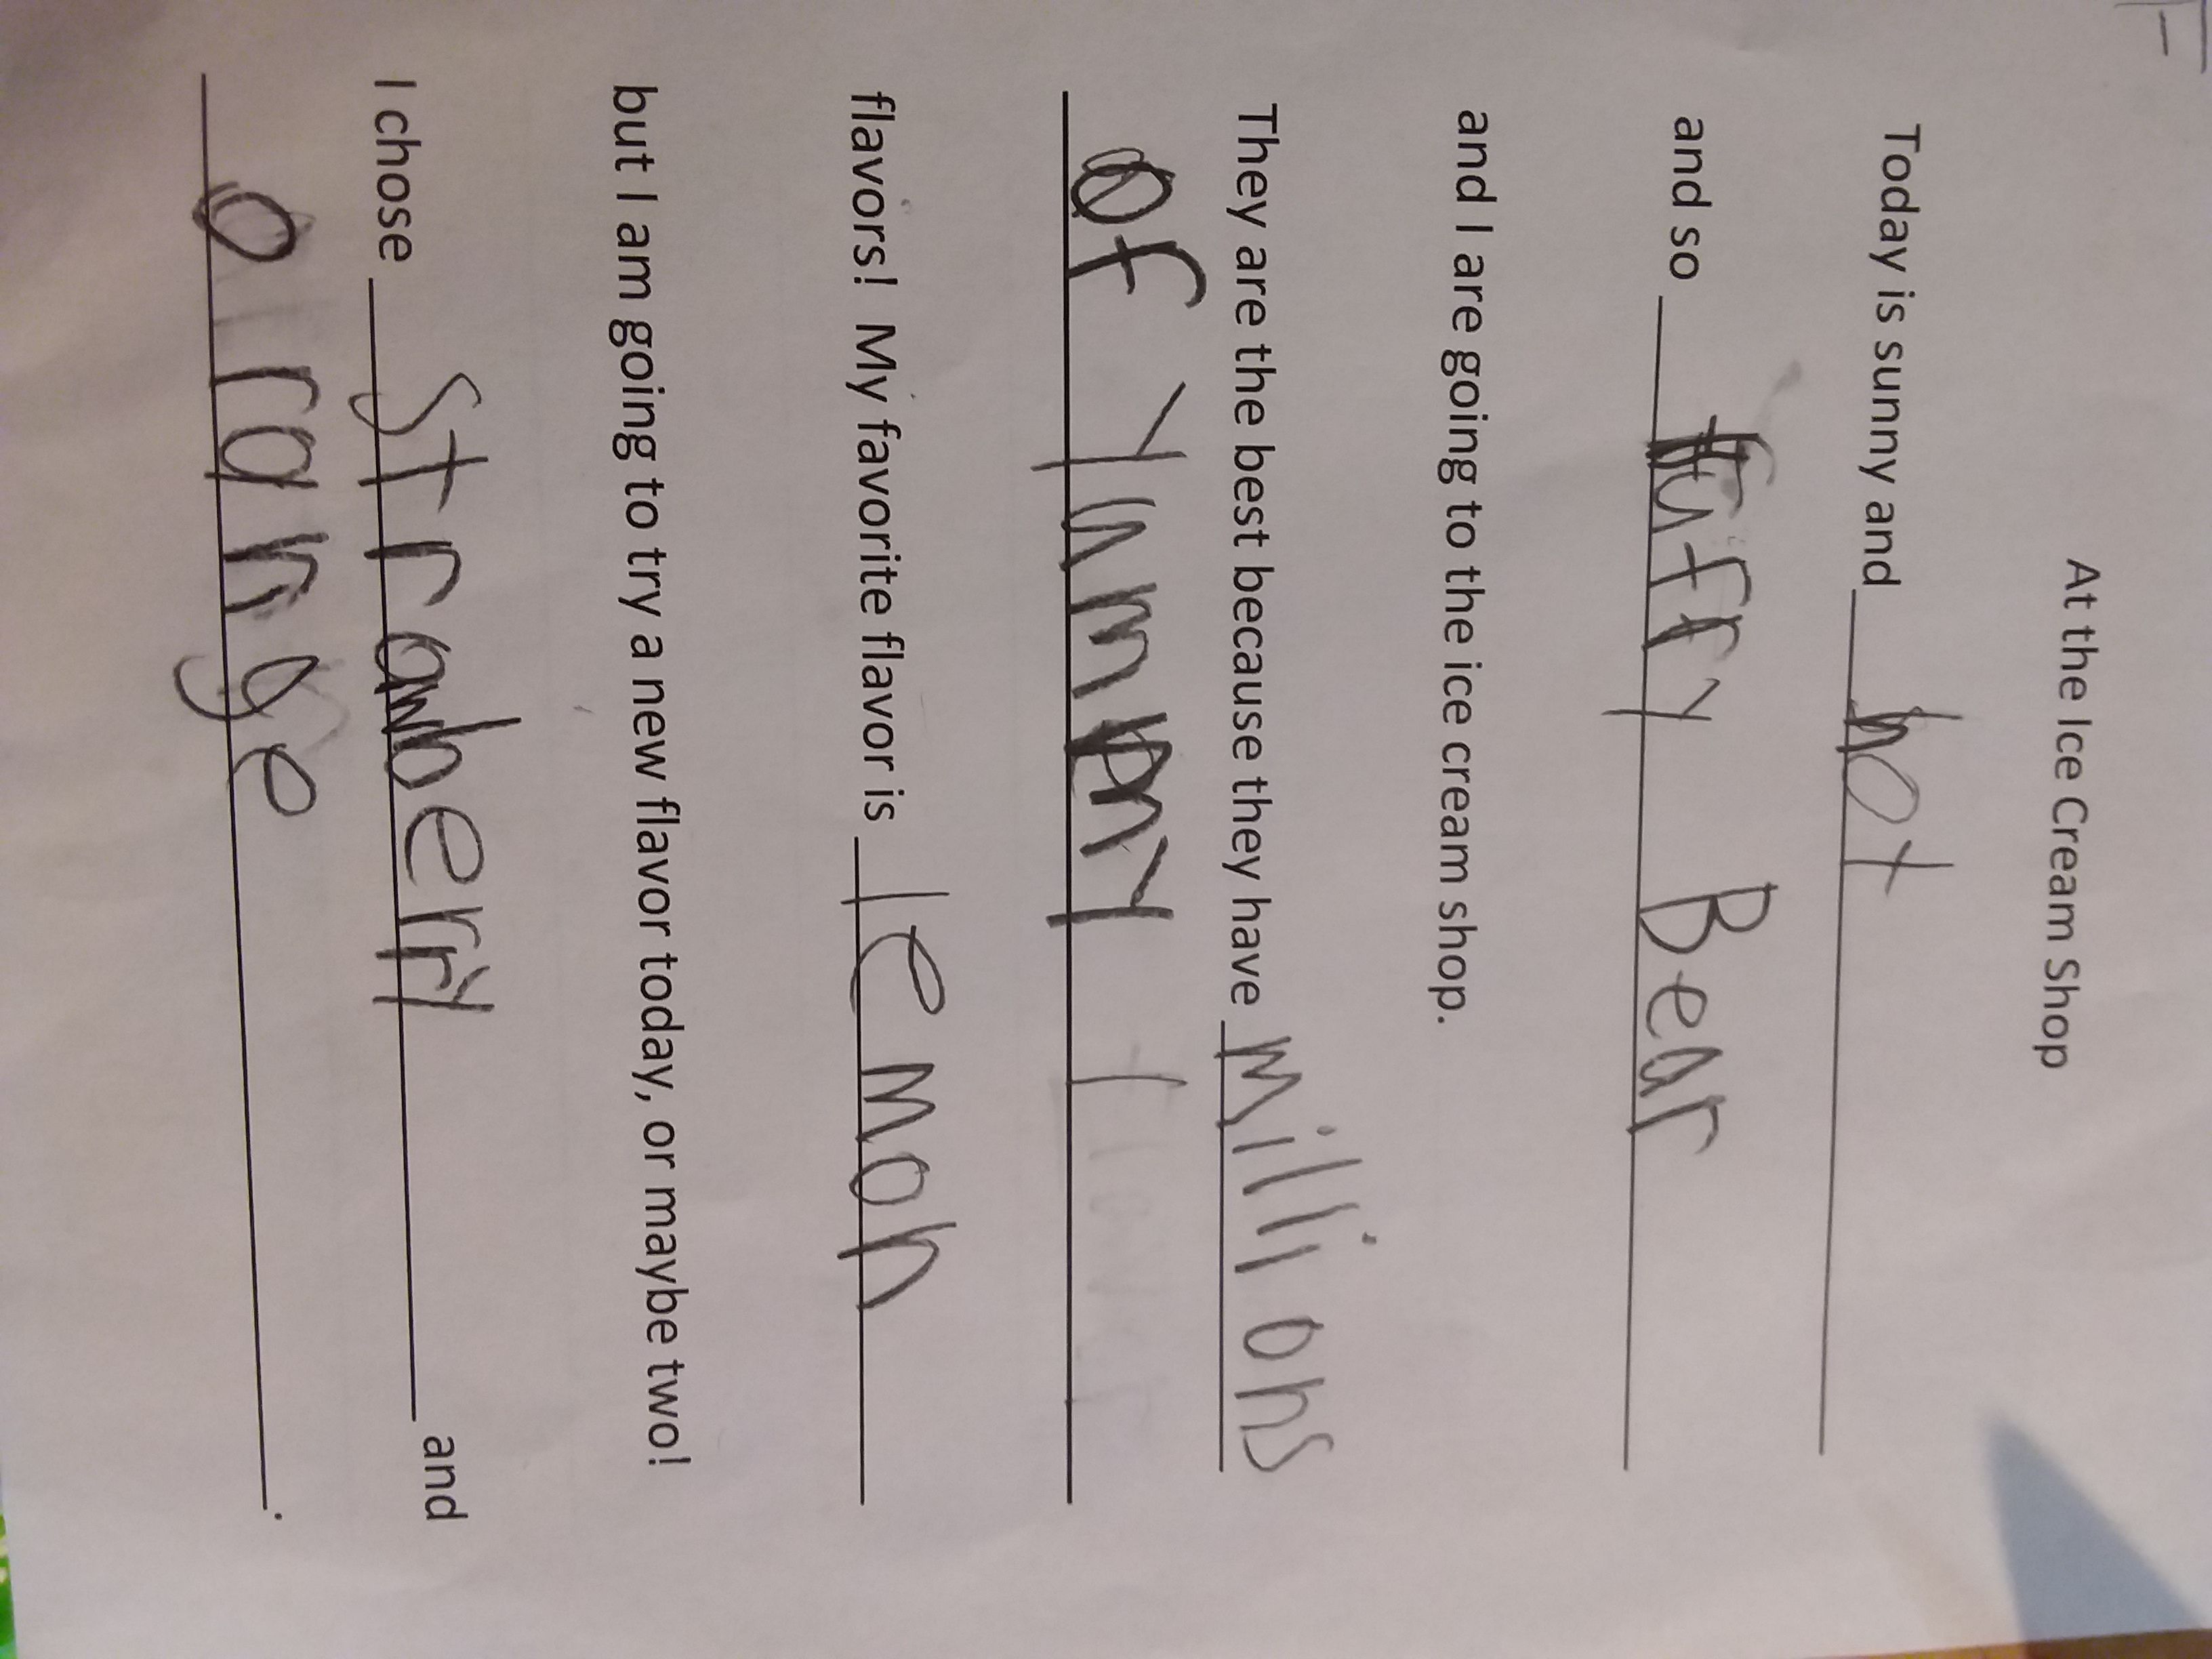 At the Ice Cream Shop
Today is sunny and hot
and so Fuffy Bear
and I are going to the ice cream shop.
They are the best because they have millions
of Yummmy
flavors! My favorite flavor is lemon
but I am going to try a new flavor today, or maybe two!
I chose Strawberry and
orange.